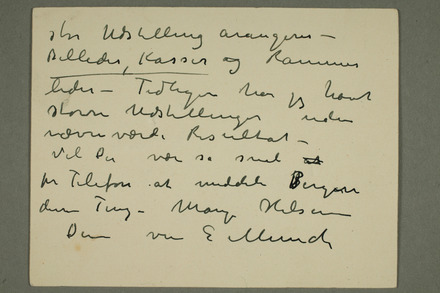 stor Udstilling arangeres –
Billeder, Kasser og Rammer
lider – Tidligere har jeg havt
større Udstillinger uden
nævneværdi Resultat –
Vil De være så snil
pr Telefon at meddele Bergen
denne Ting – Mange Hilsener
Deres ven E Munch